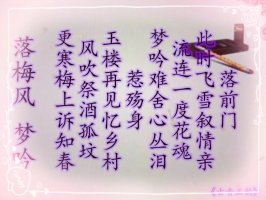 落梅风 梦吟
更寒梅上诉知春
风吹祭酒孤坟
玉楼再见忆乡村
惹殇身
梦吟难舍心丛泪
流连一度花魂
此时飞雪叙情亲
落前门